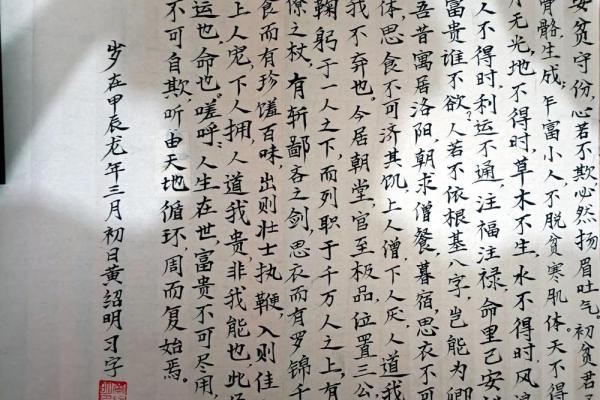 安贫守份,心若不欺必然扬眉吐气。初贫君子
骨骼生成,乍富小人,不脱贫寒肌体。天不得
月无光,地不得时,草木不生,水不得时,风浪
人不得时,利运不通,注福注禄,命里已安
富贵谁不欲?人若不依根基八字,岂能为卿
吾昔寓居洛阳,朝求僧餐,暮宿,思衣不可
体,思食不可济其饥,上人僧,下人厌,人道我
我不弃也。今居朝堂,官至极品,位置三公,
鞠躬于一人之下,而列职于千万人之上,有
僚之杖,有斩鄙吝之剑,思衣而有罗锦千
食而有珍馐百味,出则壮士执鞭,入则佳
上人宠,下人拥,人道我贵,非我能也,此
运也,命也。嗟呼!人生在世,富贵不可尽用,
不可自欺,听由天地循环,周而复始焉。
岁在甲辰龙年三月初日黄绍明习字